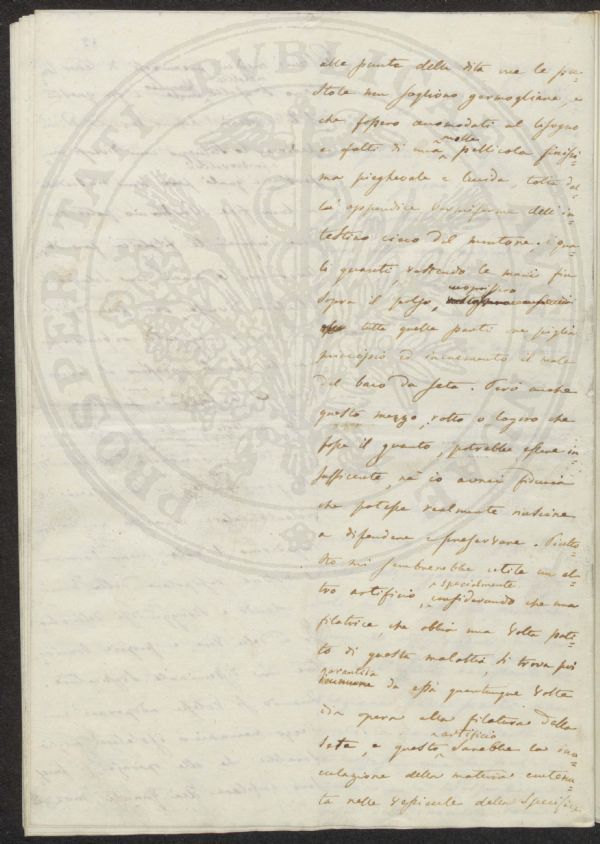 alla punta delle dita ove le pu=
stole non sogliono germogliare, e
che fossero accomodati al bisogno
e fatti di una molle pellicola finissi=
ma pieghevale e lucida, tolta dal=
la appendice vermiforme dell' in=
testino cieco del montone. I qua=
li guanti, vestendo le mani fin
sopra il polso, coprissero
tutte quelle parti ove piglia
principio ed incremento il male
del baco da seta. Però anche
questo mezzo, rotto o logoro che
fosse il guanto, potrebbe essere in=
sufficente, nè io avrei fiducia
che potesse realmente riuscire
a difendere e preservare. Piutto=
sto mi sembrerebbe utile un al=
tro artificio, specialmente considerando che una
filatrice, che abbia una volta pati=
to di questa malattia, si trova poi
garantita
da essa quantunque volte
dia opera alla filatura della
seta, e questo artificio sarebbe la ino=
culazione della materia contenu=
ta nelle vescicule della specifica
PROSPERITA PVBLIC